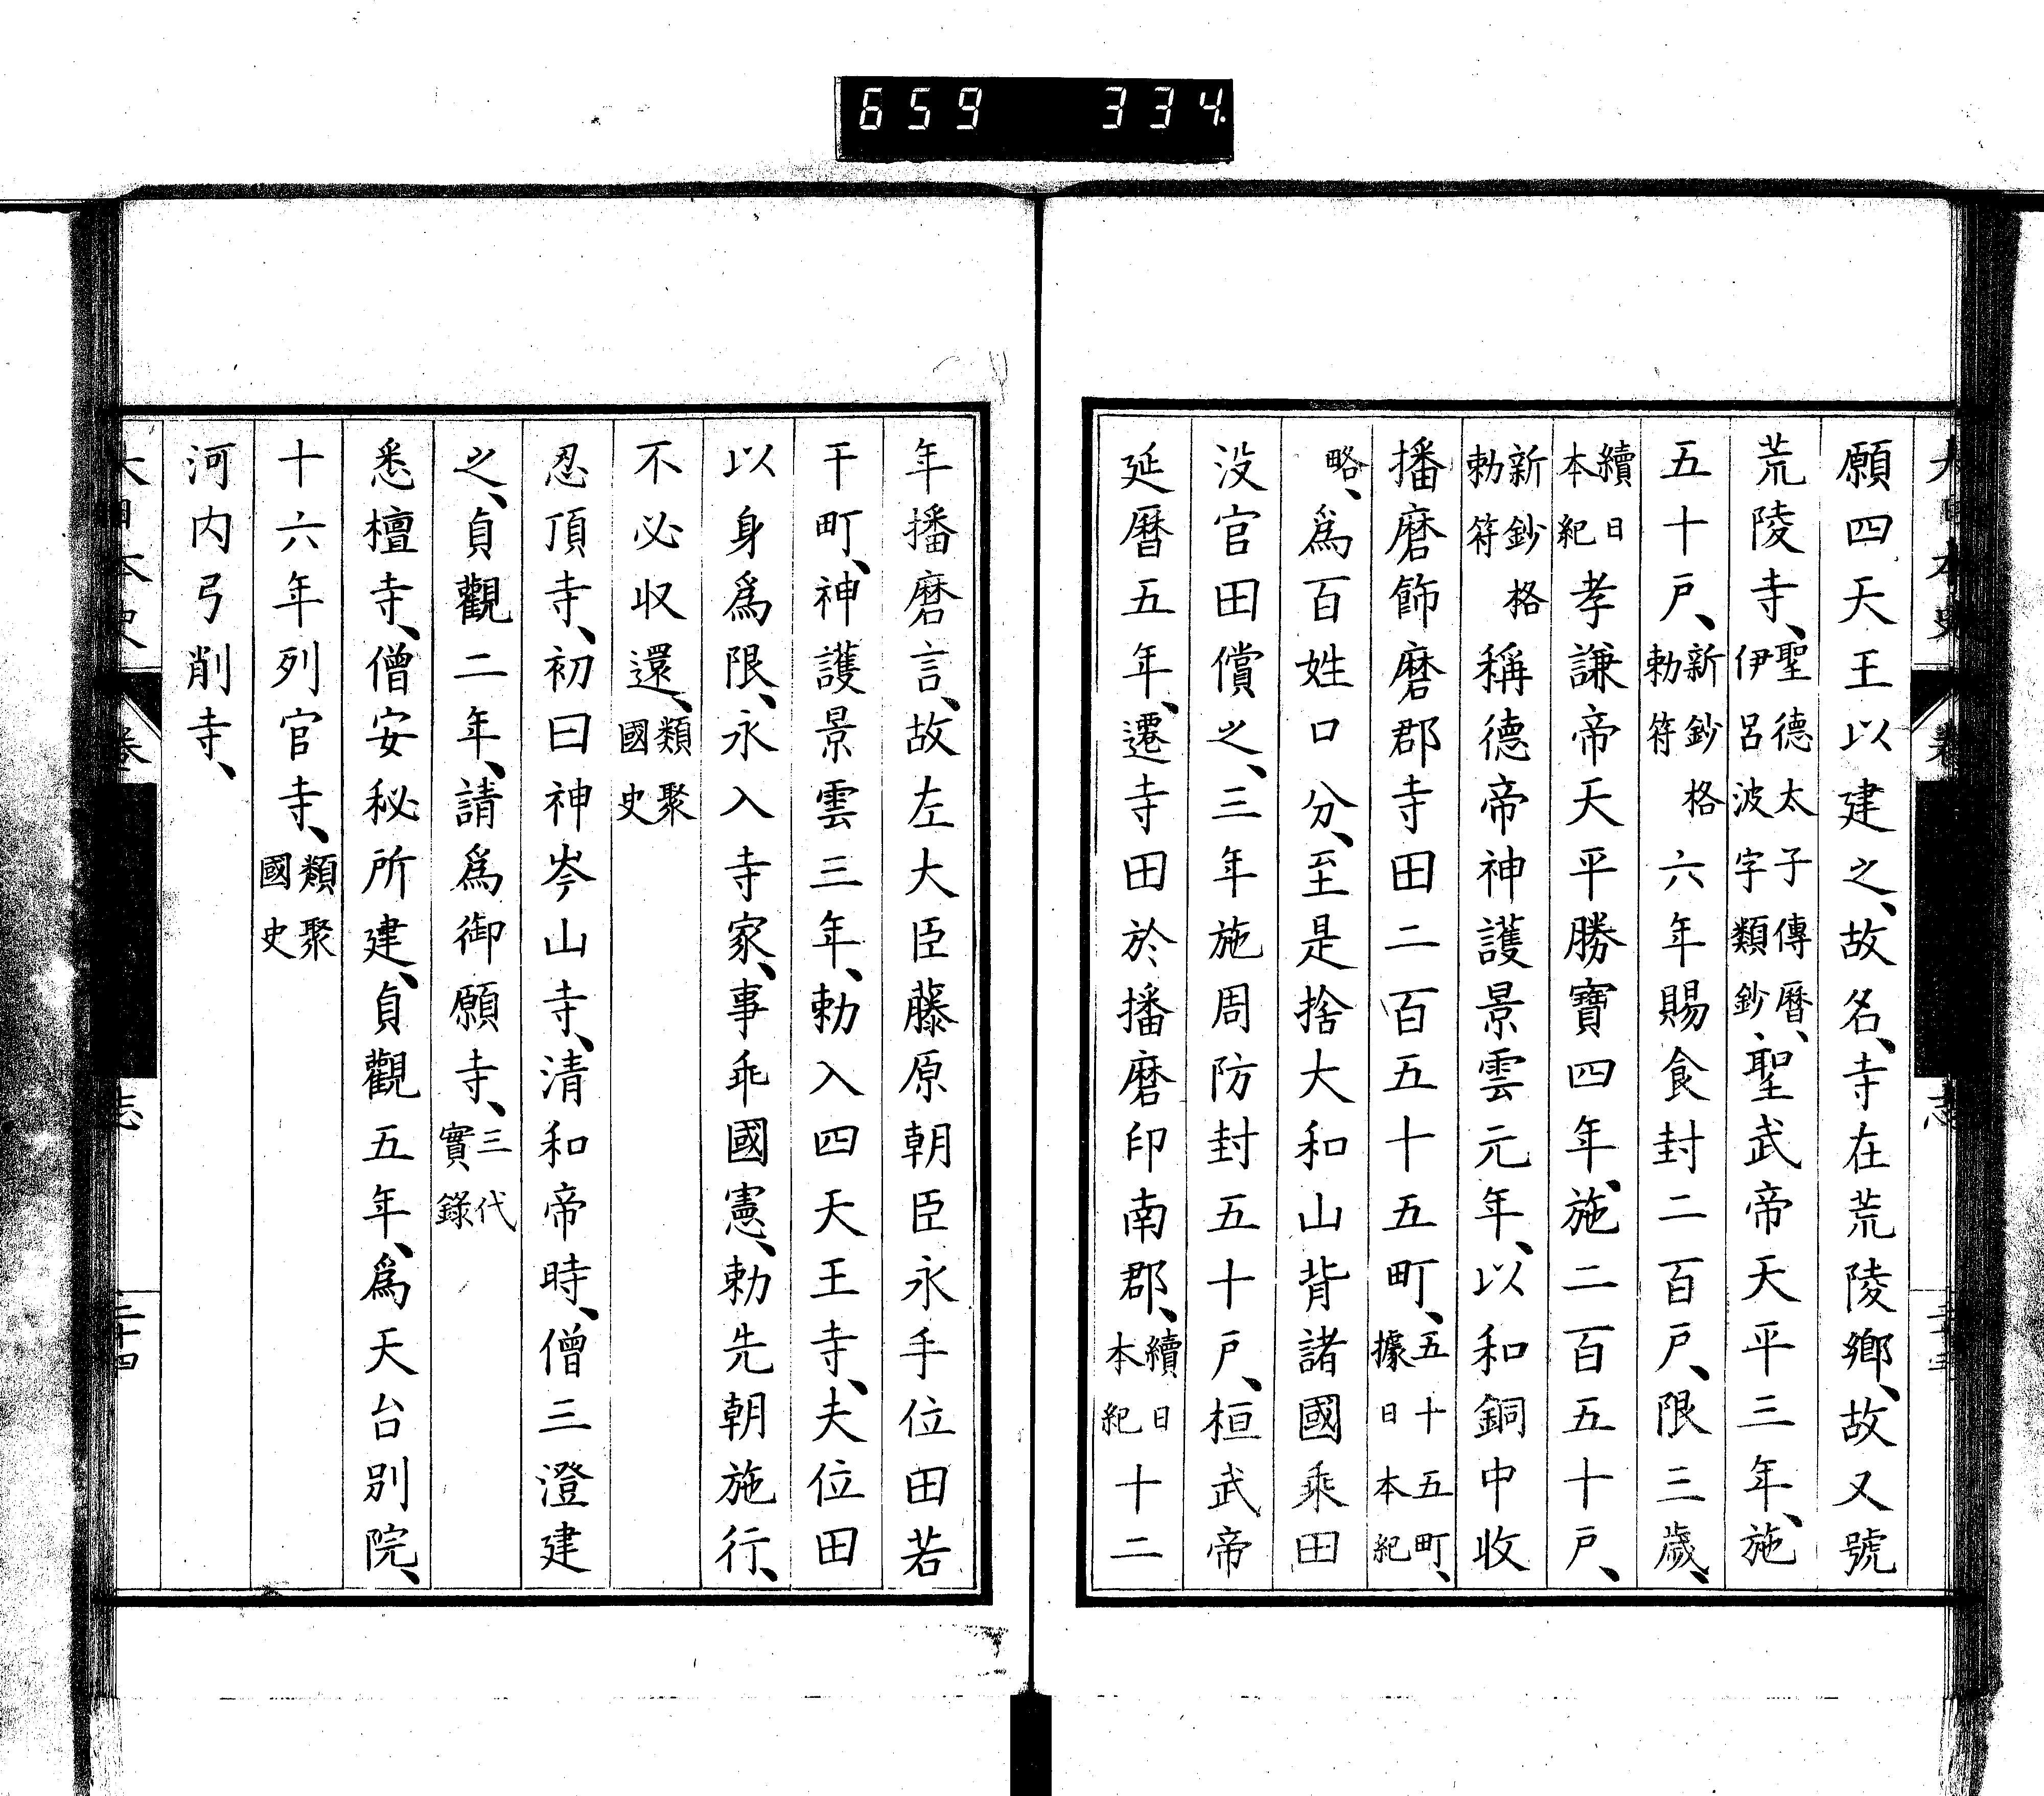 659 334.
願四天王以建之、故名、寺在荒陵鄉、故又號
荒陵寺、聖德太子傳曆、伊呂波字類鈔聖武帝天平三年、施
五十戶、新鈔格勅符六年賜食封二百戶、限三歲、
續日本紀孝謙帝天平勝寶四年、施二百五十戶、
新鈔格勅符稱德帝神護景雲元年、以和銅中收
播磨飾磨郡寺田二百五十五町、五十五町、據日本紀
略、爲百姓口分、至是捨大和山背諸國乘田
没官田償之、三年施周防封五十戶、桓武帝
延曆五年、遷寺田於播磨印南郡、續日本紀十二
年播磨言、故左大臣藤原朝臣永手位田若
干町、神護景雲三年、勅入四天王寺、夫位田
以身爲限、永入寺家、事乖國憲、勅先朝施行、
不必收還、類聚國史
忍頂寺、初曰神岑山寺、清和帝時、僧三澄建
之、貞觀二年、請爲御願寺、三代實錄
悉檀寺、僧安秘所建、貞觀五年、爲天台別院、
十六年列官寺、類聚國史
河内弓削寺、
大日本史 卷 志 三十四